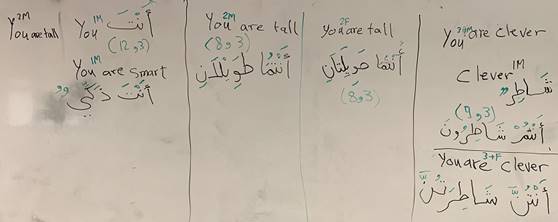 You 2M are tall
You 1M أَنْتَ
(12,3)
You 1M are smart
أَنْتَ ذَكِيٌّ
You 2M are tall
(8,3)
أَنْتُمَا طَوِيْلَانِ
You 2F are tall
أَنْتُمَا طَوِيلَتَانِ
(8,3)
You 3+M are clever
Clever 1M
شَاطِرٌ
(9,3)
أَنْتُمْ شَاطِرُونَ
You are 3+F clever
أَنْتُنَّ شَاطِرَتُنَّ